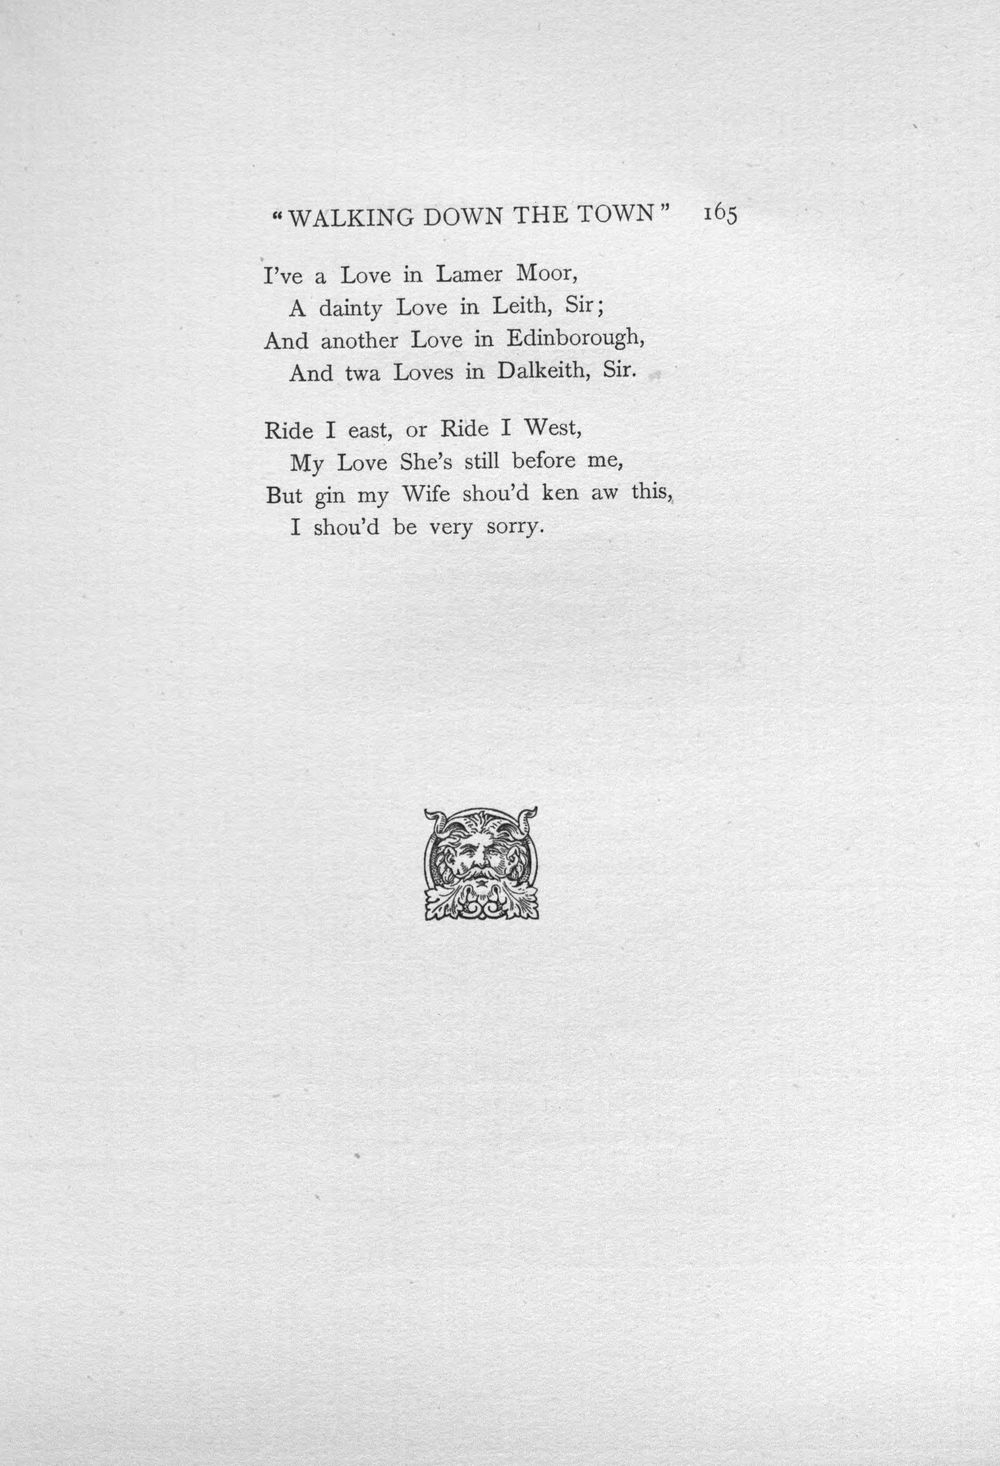 “WALKING DOWN THE TOWN” 165
I've a Love in Lamer Moor,
A dainty Love in Leith, Sir;
And another Love in Edinborough,
And twa Loves in Dalkeith, Sir.
Ride I east, or Ride I West,
My Love She's still before me,
But gin my Wife shou'd ken aw this,
I shou'd be very sorry.